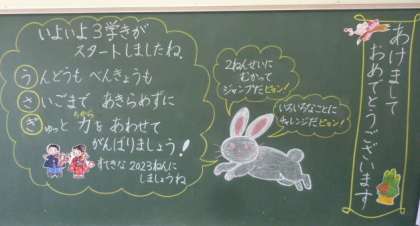 いよいよ3学きが
スタートしましたね。
うんどうも べんきょうも
さいごまで あきらめずに
ぎゅっと 力をあわせて
ちから
がんばりましょう!
すてきな 2023ねんに
しましょうね
2ねんせいに
むかって
ジャンプだピョン!
いろいろなことに
チャレンジだピョン!
あけまして
おめでとうございます